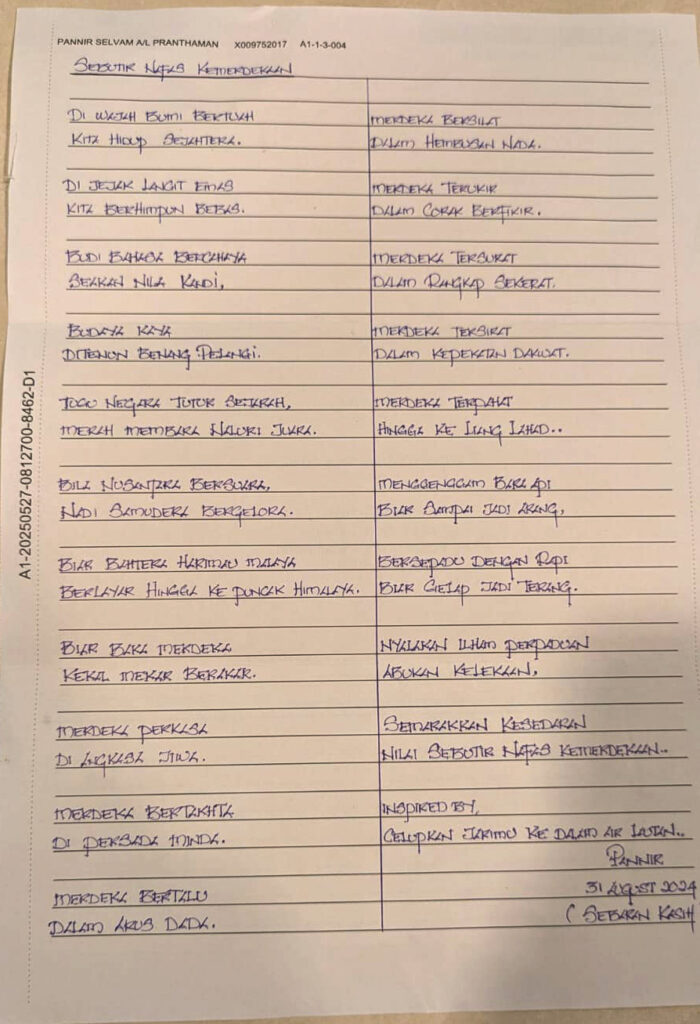 PANNIR SELVAM A/L PRANTHAMAN X009752017 A1-1-3-004
SEBUTIR NAFAS KEMERDEKAAN
DI WAJAH BUMI BERTUAH
KITA HIDUP SEJAHTERA.
DI JEJAK LANGIT EMAS
KITA BERHIMPUN BEBAS.
BUDI BAHASA BERCAHAYA
SEAKAN NILA KANDI,
BUDAYA KAYA
DITENUN BENANG PELANGI.
TUGU NEGARA TUTUR SEJARAH,
MERAH MEMBARA NALURI JUARA.
BILA NUSANTARA BERSUARA,
NADI SAMUDERA BERGELORA.
BIAR BAHTERA HARIMAU MALAYA
BERLAYAR HINGGA KE PUNCAK HIMALAYA.
BIAR BAKA MERDEKA
KEKAL MEKAR BERAKAR.
MERDEKA PERKASA
DI ANGKASA JIWA.
MERDEKA BERTAKHTA
DI PERSADA MINDA.
MERDEKA BERTALU
DALAM ARUS DADA.
MERDEKA BERSILAT
DALAM HEMBUSAN NADA.
MERDEKA TERUKIR
DALAM CORAK BERFIKIR.
MERDEKA TERSURAT
DALAM RANGKAP SEKERAT.
MERDEKA TERSIRAT
DALAM KEPEKATAN DAKWAT.
MERDEKA TERPAHAT
HINGGA KE LIANG LAHAD..
MENGGENGGAM BARA API
BIAR SAMPAI JADI ARANG,
BERSEPADU DENGAN RAPI
BIAR GELAP JADI TERANG.
NYALAKAN ILHAM PERPADUAN
ABUKAN KELEKAAN,
SEMARAKKAN KESEDARAN
NILAI SEBUTIR NAFAS KEMERDEKAAN..
INSPIRED BY,
CELUPKAN JARIMU KE DALAM AIR LAUTAN..
PANNIR
31 AUGUST 2024
( SEBARAN KASIH
A1-20250527-0812700-8462-D1